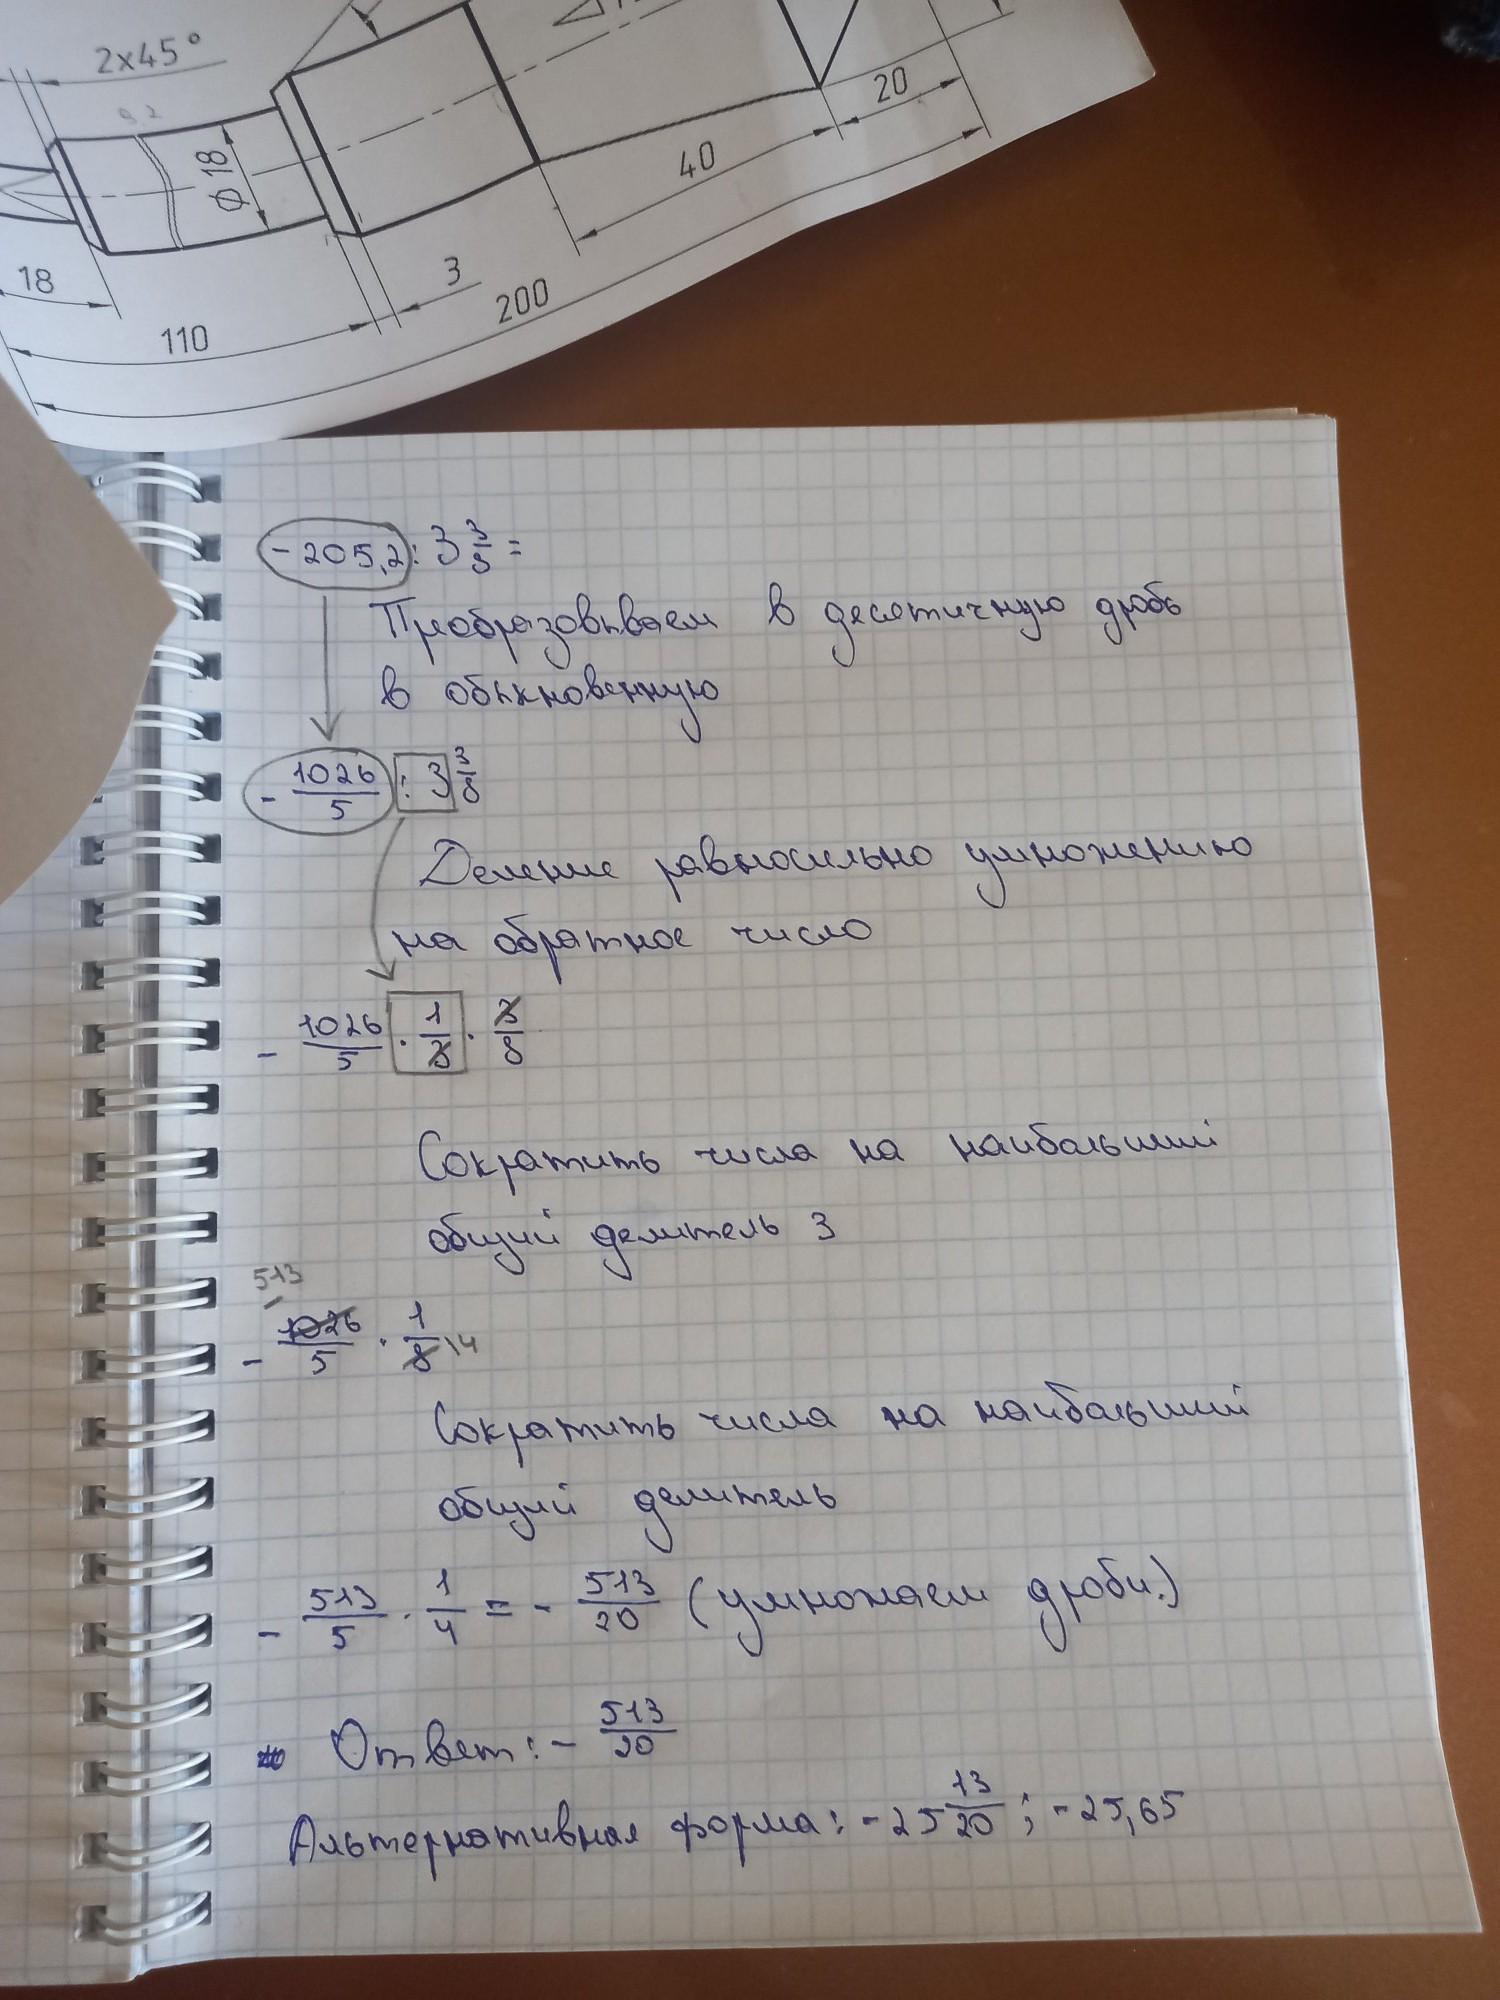 2x45°
Ø18
20
40
3
18
200
110
-205,2 : 3 3/8 =
Преобразовываем в десятичную дробь
в обыкновенную
- 1026/5 : 3 3/8
Деление равносильно умножению
на обратное число
- 1026/5 · 1/3 · 3/8
Сократить числа на наибольший
общий делитель 3
513
- 1026/5 · 1/8 \4
Сократить числа на наибольший
общий делитель
- 513/5 · 1/4 = - 513/20 (умножаем дроби.)
Ответ: - 513/20
Альтернативная форма: -25 13/20 ; -25,65